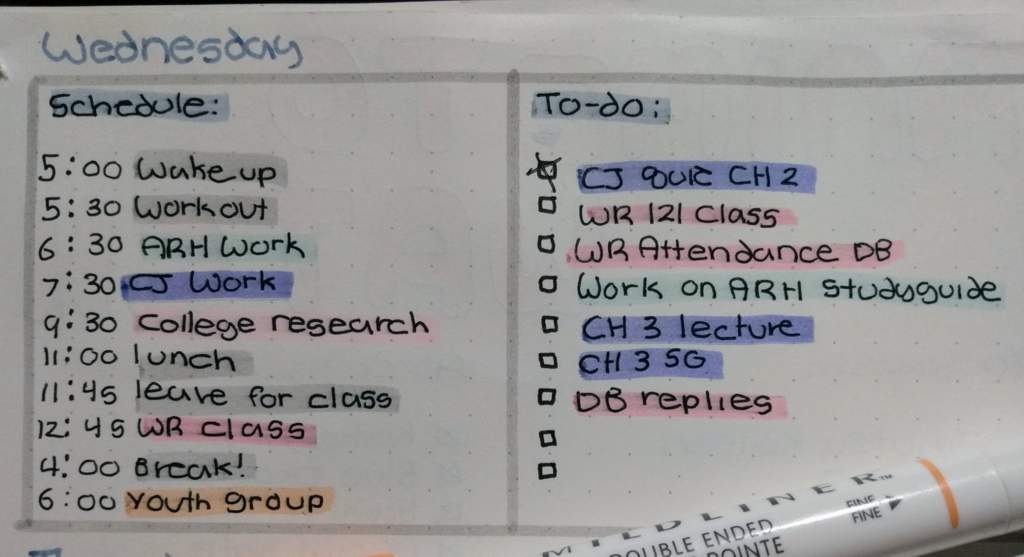 Wednesday
Schedule:
5:00 Wake up
5:30 Workout
6:30 ARH Work
7:30 CJ Work
9:30 College research
11:00 lunch
11:45 leave for class
12:45 WR class
4:00 Break!
6:00 Youth group
To-do:
CJ quiz CH 2
WR 121 Class
WR Attendance DB
Work on ARH Studyguide
CH 3 lecture
CH 3 SG
DB replies
MILDLINER™
DOUBLE ENDED
POINTE
FINE
FINE